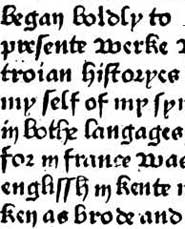 Began boldly to
presente werke
troian hiſtoryes
my ſelf of my ſym
in bothe langages
for in france was
engliſſh in kente
ken as brode and